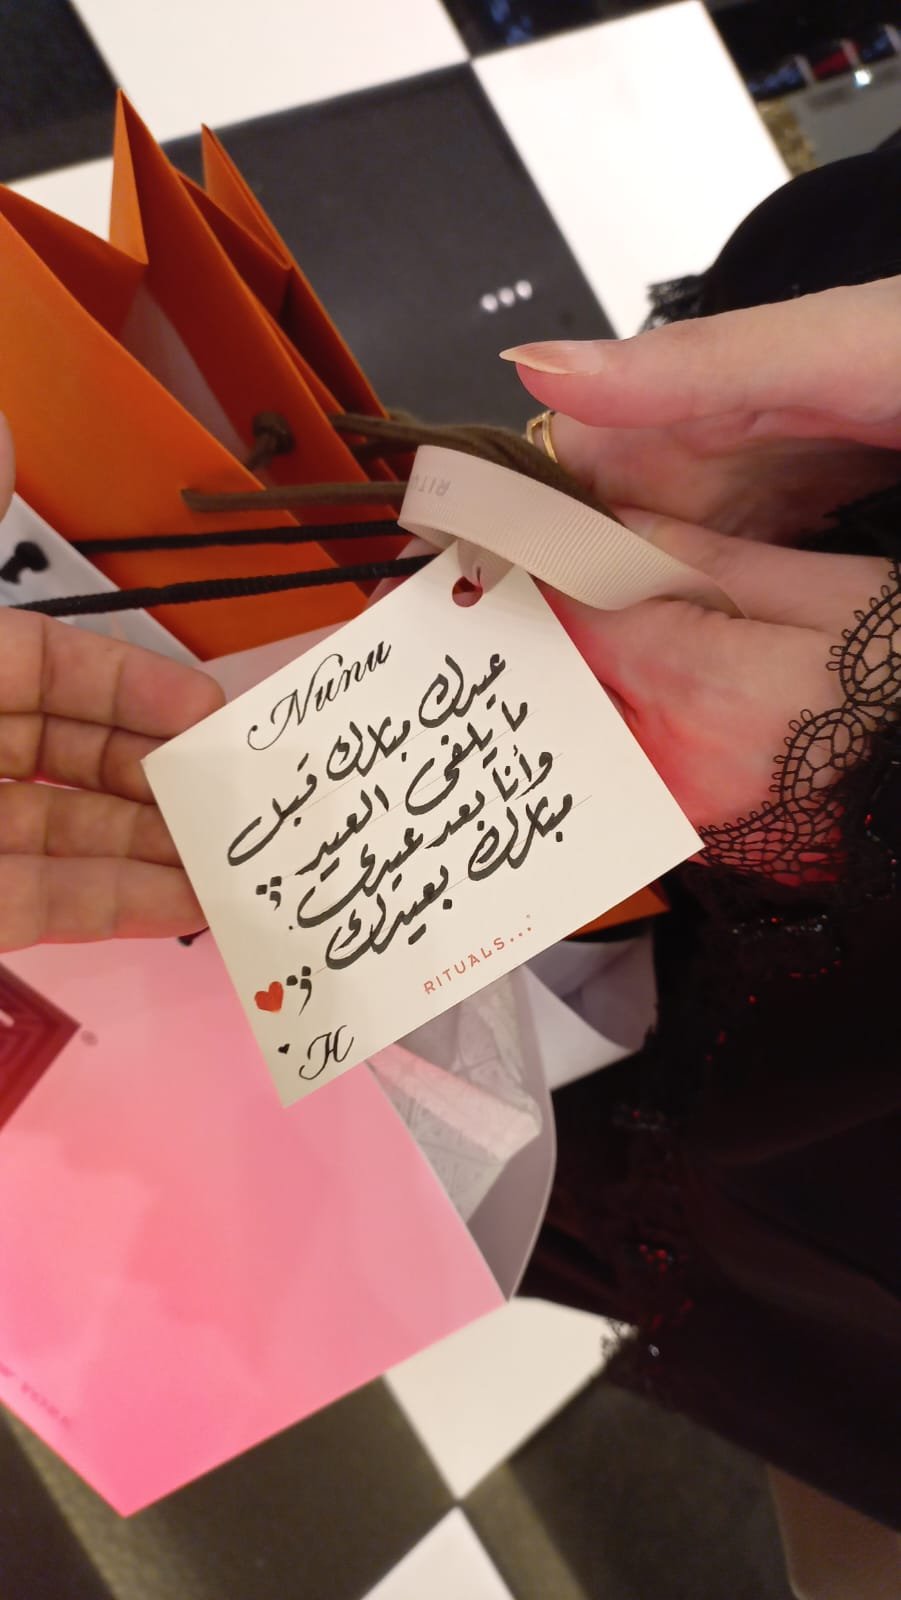 RITU
Nunu
عيدك مبارك قبل
ما يلفى العيد ؛؛
وأنا بعد عيدي
مبارك بعيدك ؛؛
RITUALS...
H